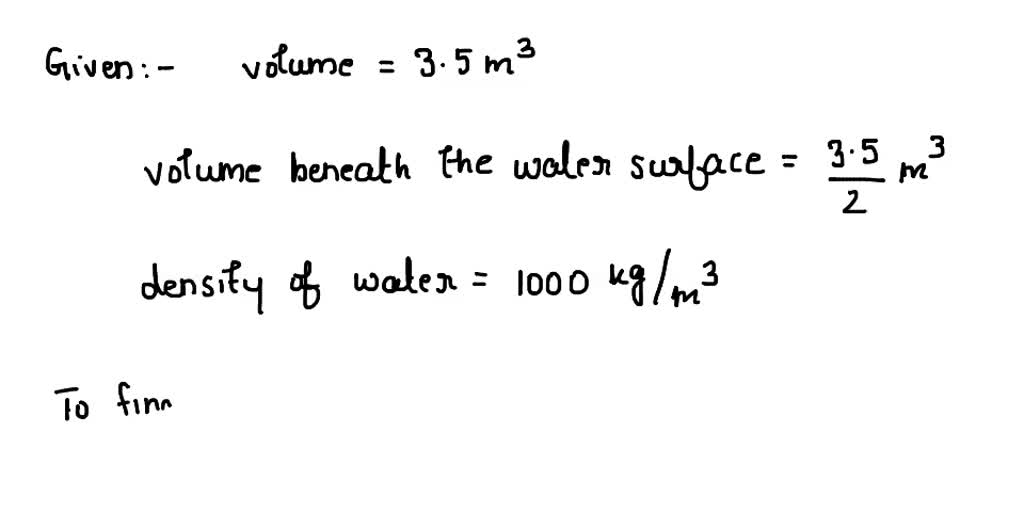 Given:- volume = 3.5 m³
volume beneath the water surface = 3.5/2 m³
density of water = 1000 kg/m³
To finn